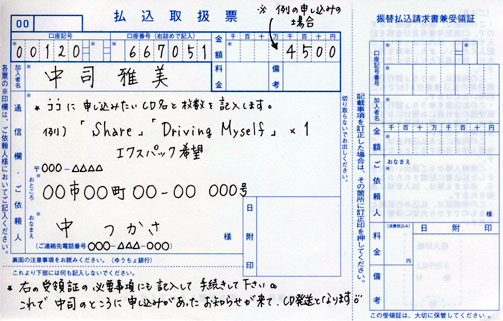 00
払込取扱票
※ 例の申し込みの場合
口座記号
口座番号(右詰めで記入)
金額
千 百 十 万 千 百 十 円
00120
667051
4500
加入者名
中司 雅美
料金
備考
※ ここに申し込みたいCD名と枚数を記入します。
例) 「Share」「Driving Myself」×1
エクスパック希望
通信欄・ご依頼人
〒000-△△△△
おところ
〇〇市〇〇町 〇〇-〇〇 〇〇〇号
おなまえ
中 つかさ
様
(ご連絡先電話番号 〇〇〇-△△△-〇〇〇)
日附印
裏面の注意事項をお読みください。(ゆうちょ銀行)
これより下部には何も記入しないでください。
※ 右の受領証の必要事項にも記入して手続きして下さい。
これで中司のところに申し込みがあったお知らせが来て、CD発送となります
各票の※印欄は、ご依頼人様においてご記入ください。
切り取らないでお出しください。
記載事項を訂正した場合は、その箇所に訂正印を押してください。
振替払込請求書兼受領証
口座記号
口座番号
加入者名
金額
千 百 十 万 千 百 十 円
ご依頼人
おなまえ
様
料金
(消費税込み)
日附印
備考
この受領証は、大切に保管してください。